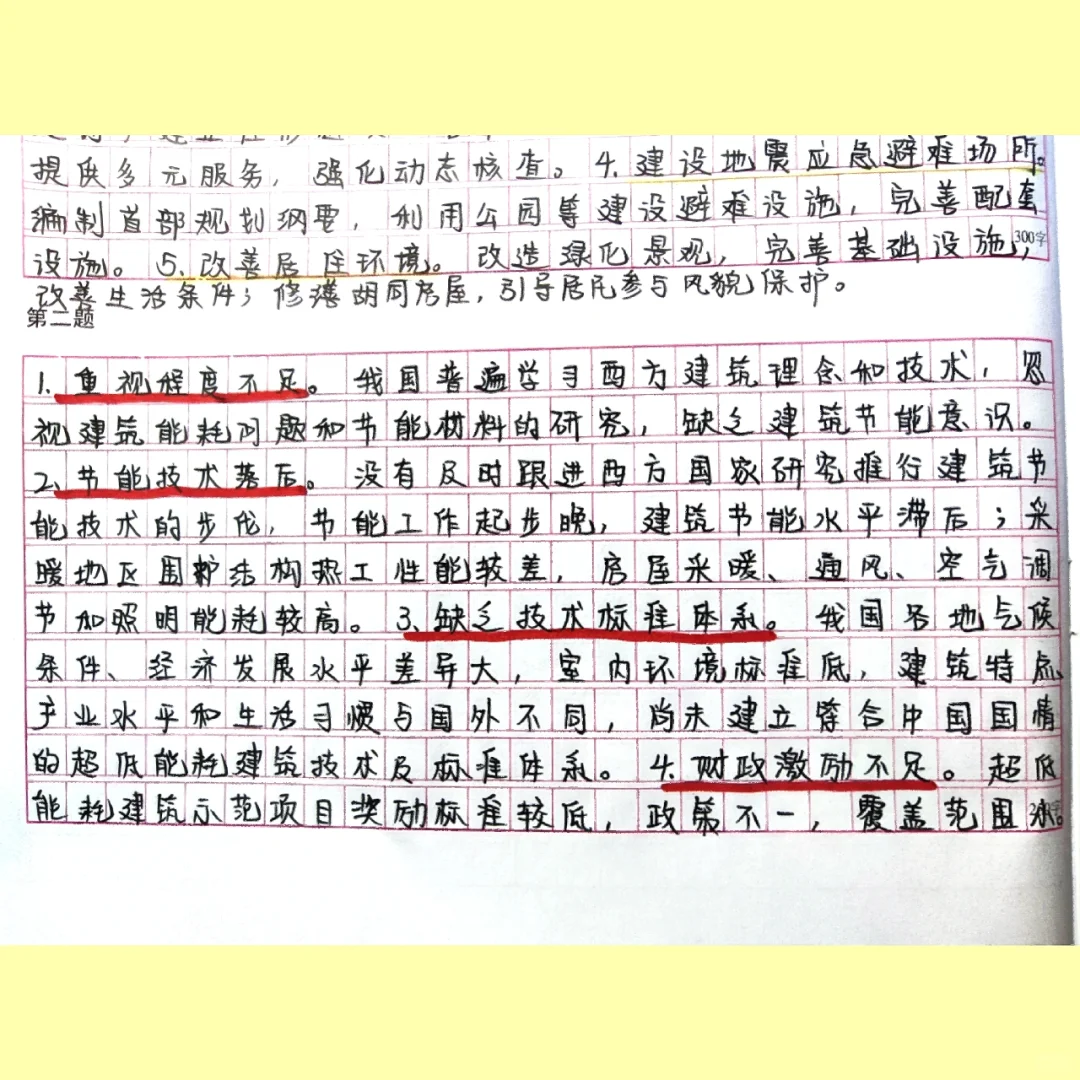 提供多元服务，强化动态核查。4.建设地震应急避难场所。
编制首部规划纲要，利用公园等建设避难设施，完善配套
设施。5.改善居住环境。改造绿化景观，完善基础设施，300字
改善生活条件；修缮胡同房屋，引导居民参与风貌保护。
第二题
1.重视程度不足。我国普遍学习西方建筑理念和技术，忽
视建筑能耗问题和节能材料的研究，缺乏建筑节能意识。
2.节能技术落后。没有及时跟进西方国家研究推行建筑节
能技术的步伐，节能工作起步晚，建筑节能水平滞后；采
暖地区围护结构热工性能较差，房屋采暖、通风、空气调
节和照明能耗较高。3.缺乏技术标准体系。我国各地气候
条件、经济发展水平差异大，室内环境标准低，建筑特点
产业水平和生活习惯与国外不同，尚未建立符合中国国情
的超低能耗建筑技术及标准体系。4.财政激励不足。超低
能耗建筑示范项目奖励标准较低，政策不一，覆盖范围小。